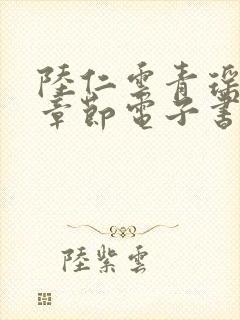 陸仁雲青瑤
章節電子書
陸紫雲